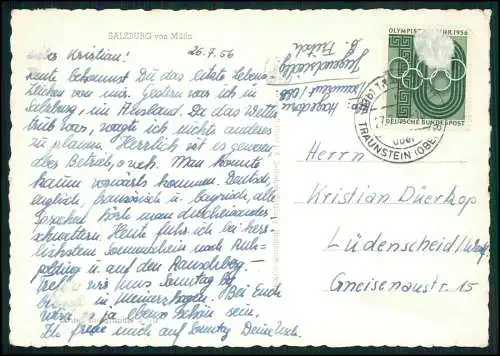 SALZBURG von Mülln
26.7.56
Lieber Kristian!
Heute bekommst Du das letzte Lebens-
zeichen von mir. Gestern war ich in
Salzburg, im Ausland. Da das Wetter
trüb war, wagte ich nichts anderes
zu planen. Herrlich ist es gewesen
der Betrieb, o weh. Man konnte
kaum vorwärts kommen. Deutsch,
englisch, französisch u. bayrisch, alle
Sprachen hört man durcheinander
schnattern. Heute fuhr ich bei herr-
lichstem Sonnenschein nach Ruh-
polding u. auf den Rauschberg.
Treffen wir uns Sonntag
in Meinerzhagen. Bei Euch
wäre es ja ebenso schön sein.
Ich freue mich auf Sonntag Deine
Jugendherberge
OLYMPISCHES JAHR 1956
DEUTSCHE BUNDESPOST
über
TRAUNSTEIN (OBERB)
Herrn
Kristian Düerkop
Lüdenscheid/Westf
Gneisenaustr. 15